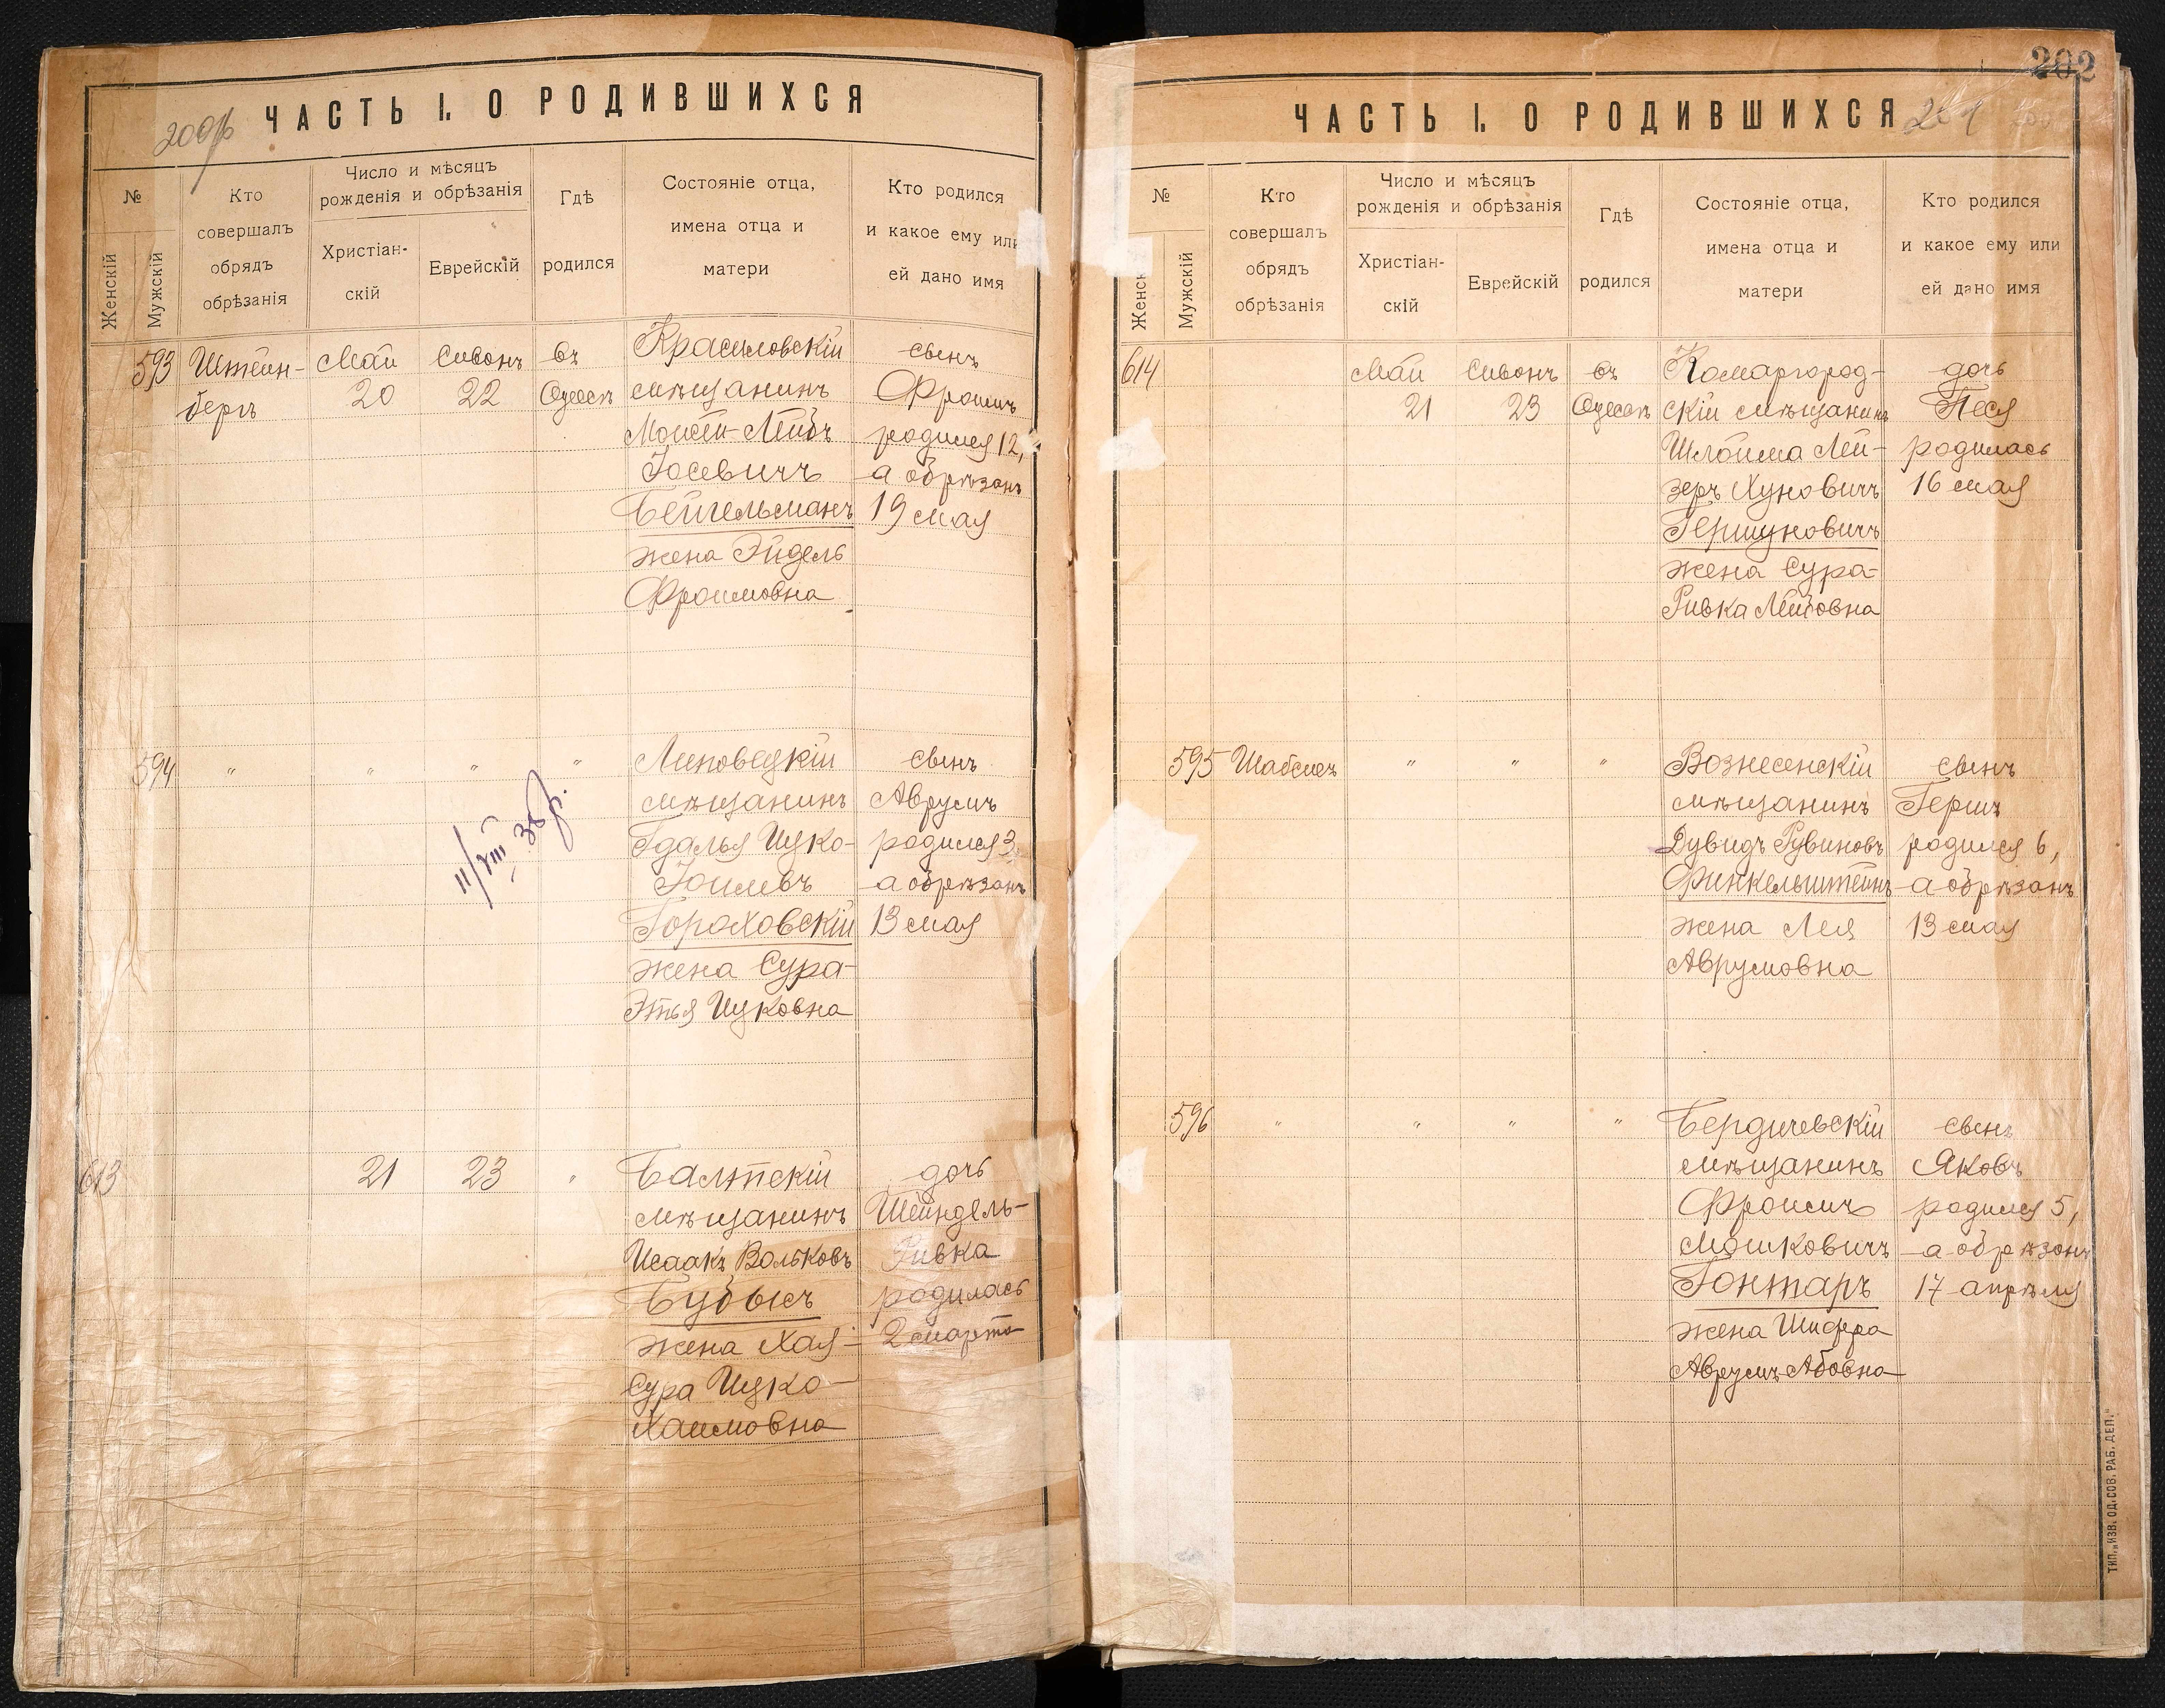 200
ЧАСТЬ I. О РОДИВШИХСЯ
№
Женскій
Мужскій
Кто
совершалъ
обрядъ
обрѣзанія
Число и мѣсяцъ
рожденія и обрѣзанія
Христіан-
скій
Еврейскій
Гдѣ
родился
Состояніе отца,
имена отца и
матери
Кто родился
и какое ему или
ей дано имя
593
Штейн-
бергъ
Май
20
Сивонъ
22
въ
Одессѣ
Красиловскій
мѣщанинъ
Мойсей-Лейбъ
Іосевичъ
Бейгельманъ
жена Эйдель
Фроимовна
сынъ
Фроимъ
родился 12,
а обрѣзанъ
19 мая
594
"
"
"
"
Липовецкій
мѣщанинъ
Гдалья Ицко-
Іоилевъ
Гороховскій
жена Сура-
Этья Ицковна
сынъ
Аврумъ
родился 3,
а обрѣзанъ
13 мая
11/VIII 38г.
613
21
23
"
Балтскій
мѣщанинъ
Исаакъ Вольковъ
Будыкъ
жена Хая-
Сура Ицко-
Хаимовна
дочь
Шейндель-
Ривка
родилась
2 марта
202
ЧАСТЬ I. О РОДИВШИХСЯ
201
№
Женск
Мужскій
Кто
совершалъ
обрядъ
обрѣзанія
Число и мѣсяцъ
рожденія и обрѣзанія
Христіан-
скій
Еврейскій
Гдѣ
родился
Состояніе отца,
имена отца и
матери
Кто родился
и какое ему или
ей дано имя
614
Май
21
Сивонъ
23
въ
Одессѣ
Комаргород-
скій мѣщанинъ
Шлойма Лей-
зеръ Хуновичъ
Гершуновичъ
жена Сура-
Ривка Лейбовна
дочь
Песя
родилась
16 мая
595
Шабсисъ
"
"
"
Вознесенскій
мѣщанинъ
Дувидъ Рувиновъ
Финкельштейнъ
жена Лея
Аврумовна
сынъ
Гершъ
родился 6,
а обрѣзанъ
13 мая
596
"
"
"
"
Бердичевскій
мѣщанинъ
Фроимъ
Мошковичъ
Гонтаръ
жена Шифра
Аврумъ-Абовна
сынъ
Яковъ
родился 5,
а обрѣзанъ
17 апрѣля
ТИП. „ИЗВ. ОД. СОВ. РАБ. ДЕП."